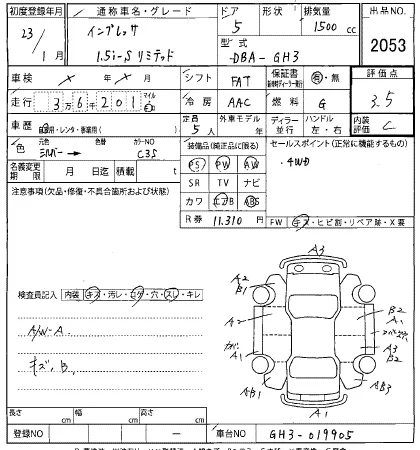 初度登録年月 通称車名・グレード ドア 形状 排気量 出品NO.
23/1 インプレッサ 5 1500 cc
1.5i-S リミテッド 型式 2053
DBA-GH3
車検 シフト FAT 保証書 有・無 評価点
走行 3万6千201 マイル 冷房 AAC 燃料 G 3.5
車歴 自家用・レンタ・事業用( ) 定員 5人 外車モデル 年 ディーラー 並行 ハンドル 左・右 内装評価 C
色 元色 シルバー 色替 カラーNO C35 装備品(純正品に限る) セールスポイント(正常に機能するもの)
名義変更期限 月 日迄 積載 t PS PW AW ・4WD
注意事項(欠品・修復・不具合箇所および状態) SR TV ナビ
カワ エアB ABS
R券 11,310 円 FW キズ・ヒビ割・リペア跡・X要
検査員記入 内装 キズ・汚レ・コゲ・穴・スレ・キレ
A/W-A.
キズ、B.
A3
A2 B1
A2
A1
AB1
A1
B2 A1
B2
A3 B2
AB3
長さ cm 幅 cm 高さ cm
登録NO ー 車台NO GH3-019905